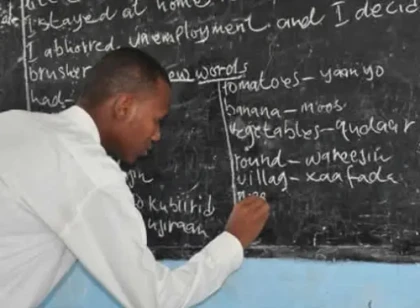 I stayed at home
I abhorred unemployment and I decid
brusher
new words
had-
tomatoes - yaanyo
banana - moos
vegetables - qudaar
round - wareejin
villag - xaafada
kubiirid
ujiraan